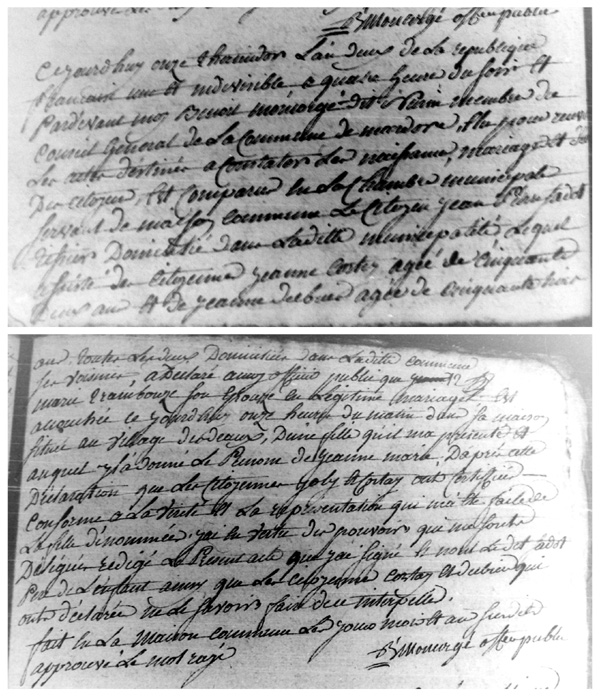 approuve le
B. Moncorgé off. en public
Ce jourdhuy onze thermidor L'an deux de la republique
francaise une et indivisible a quatre heure du soir Et
Pardevant moy Benoit moncorgé dit Perrin membre du
Conseil General de La Commune de mardore Elu pour recevoir
Les actes destinée a Constater Les naissance, mariage et décès
Des citoyens, Est Comparue En La Chambre municipale
servant de maison commune Le Citoyen jean
Domicilié dans Laditte municipalité Lequel
assisté des Citoyenne jeanne Costez agée de cinquante
Deux an Et de jeanne dubuis agée de cinquante trois
ans toutes Les deux Domiciliée dans Laditte commune
ses voisines, a Declaré a moy officié public que
marie trambouze son Epouze En Legitime mariage Est
accouchée ce jourdhuy onze heure du matin dans sa maison
située au village des deaux, Dune fille qu'il ma presenté Et
auquel il a donné Le Prenom de jeanne marie. D'après cette
Déclaration que Les Citoyennes Costez ont Certifiée
Conforme a La Verité Et La représentation qui m'a été faite de
La fille dénommée, j'ai en Vertu des pouvoirs qui me sont
Délégués Redigé Le Present acte que j'ai signé Et nom Le dit
Pere de L'enfant ainsy que Les Citoyenne Costez Et dubuis qui
ont déclarée ne Le savoir faire de ce interpellé.
fait En La Maison commune Les jour mois Et an susdit
approuve Le mot rayé
B. Moncorgé off. en public